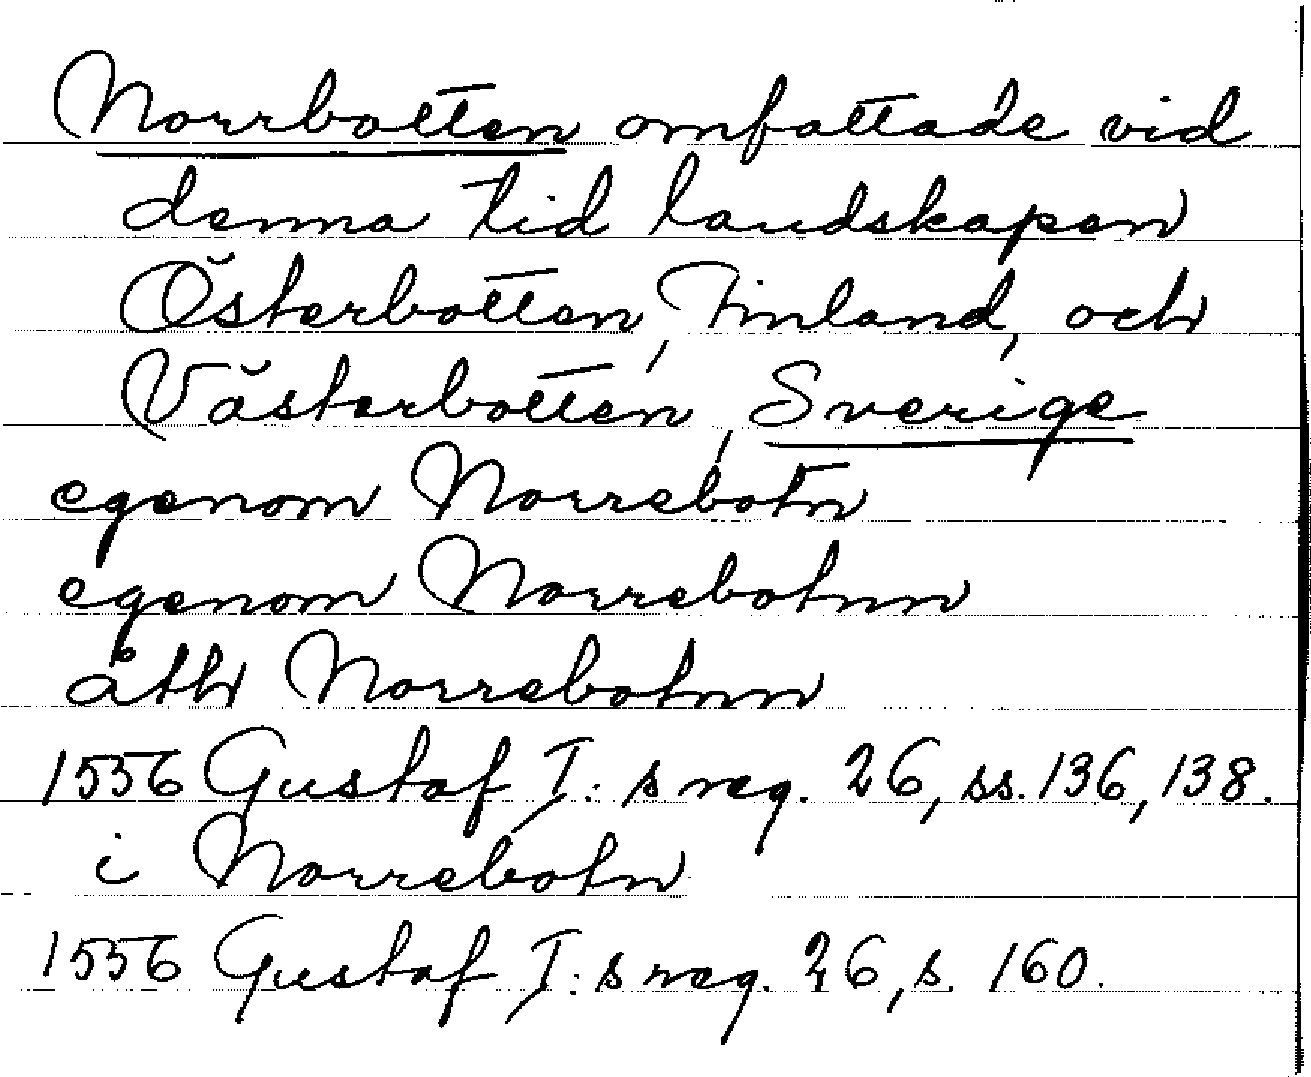 Norrbotten omfattade vid
denna tid landskapen
Österbotten, Finland, och
Västerbotten, Sverige
egenom Norrebotn
egenom Norrebotnn
åth Norrebotnn
1556 Gustaf I:s reg. 26, ss. 136, 138.
i Norrebotn
1556 Gustaf I:s reg. 26, s. 160.